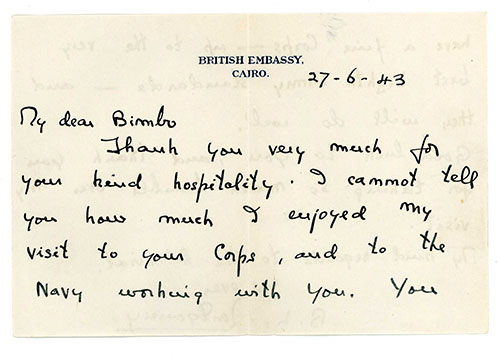 BRITISH EMBASSY,
CAIRO.
27-6-43
My dear Bimbo
Thank you very much for
your kind hospitality. I cannot tell
you how much I enjoyed my
visit to your Corps, and to the
Navy working with you. You